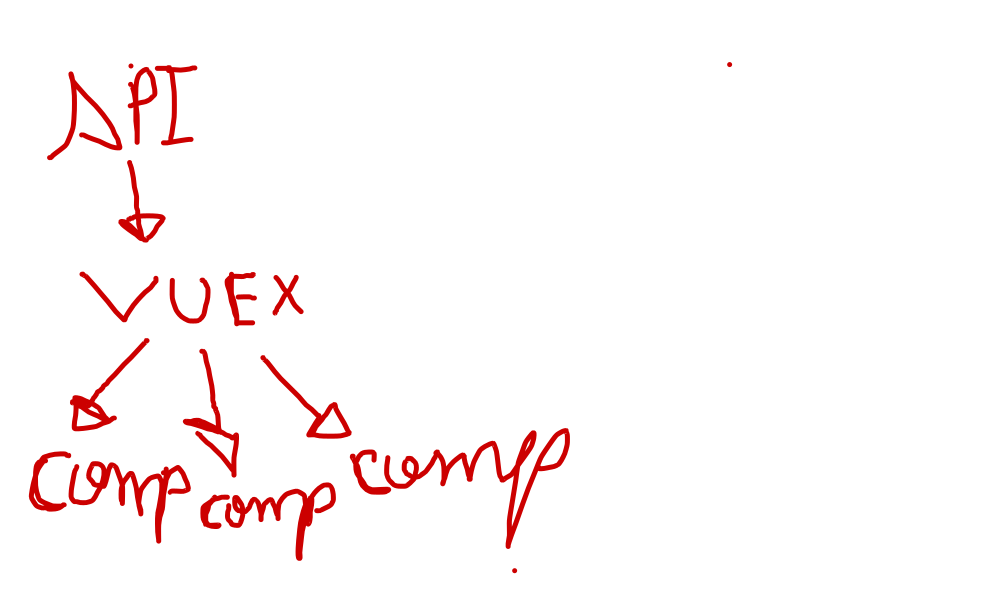 API
VUEX
comp comp comp